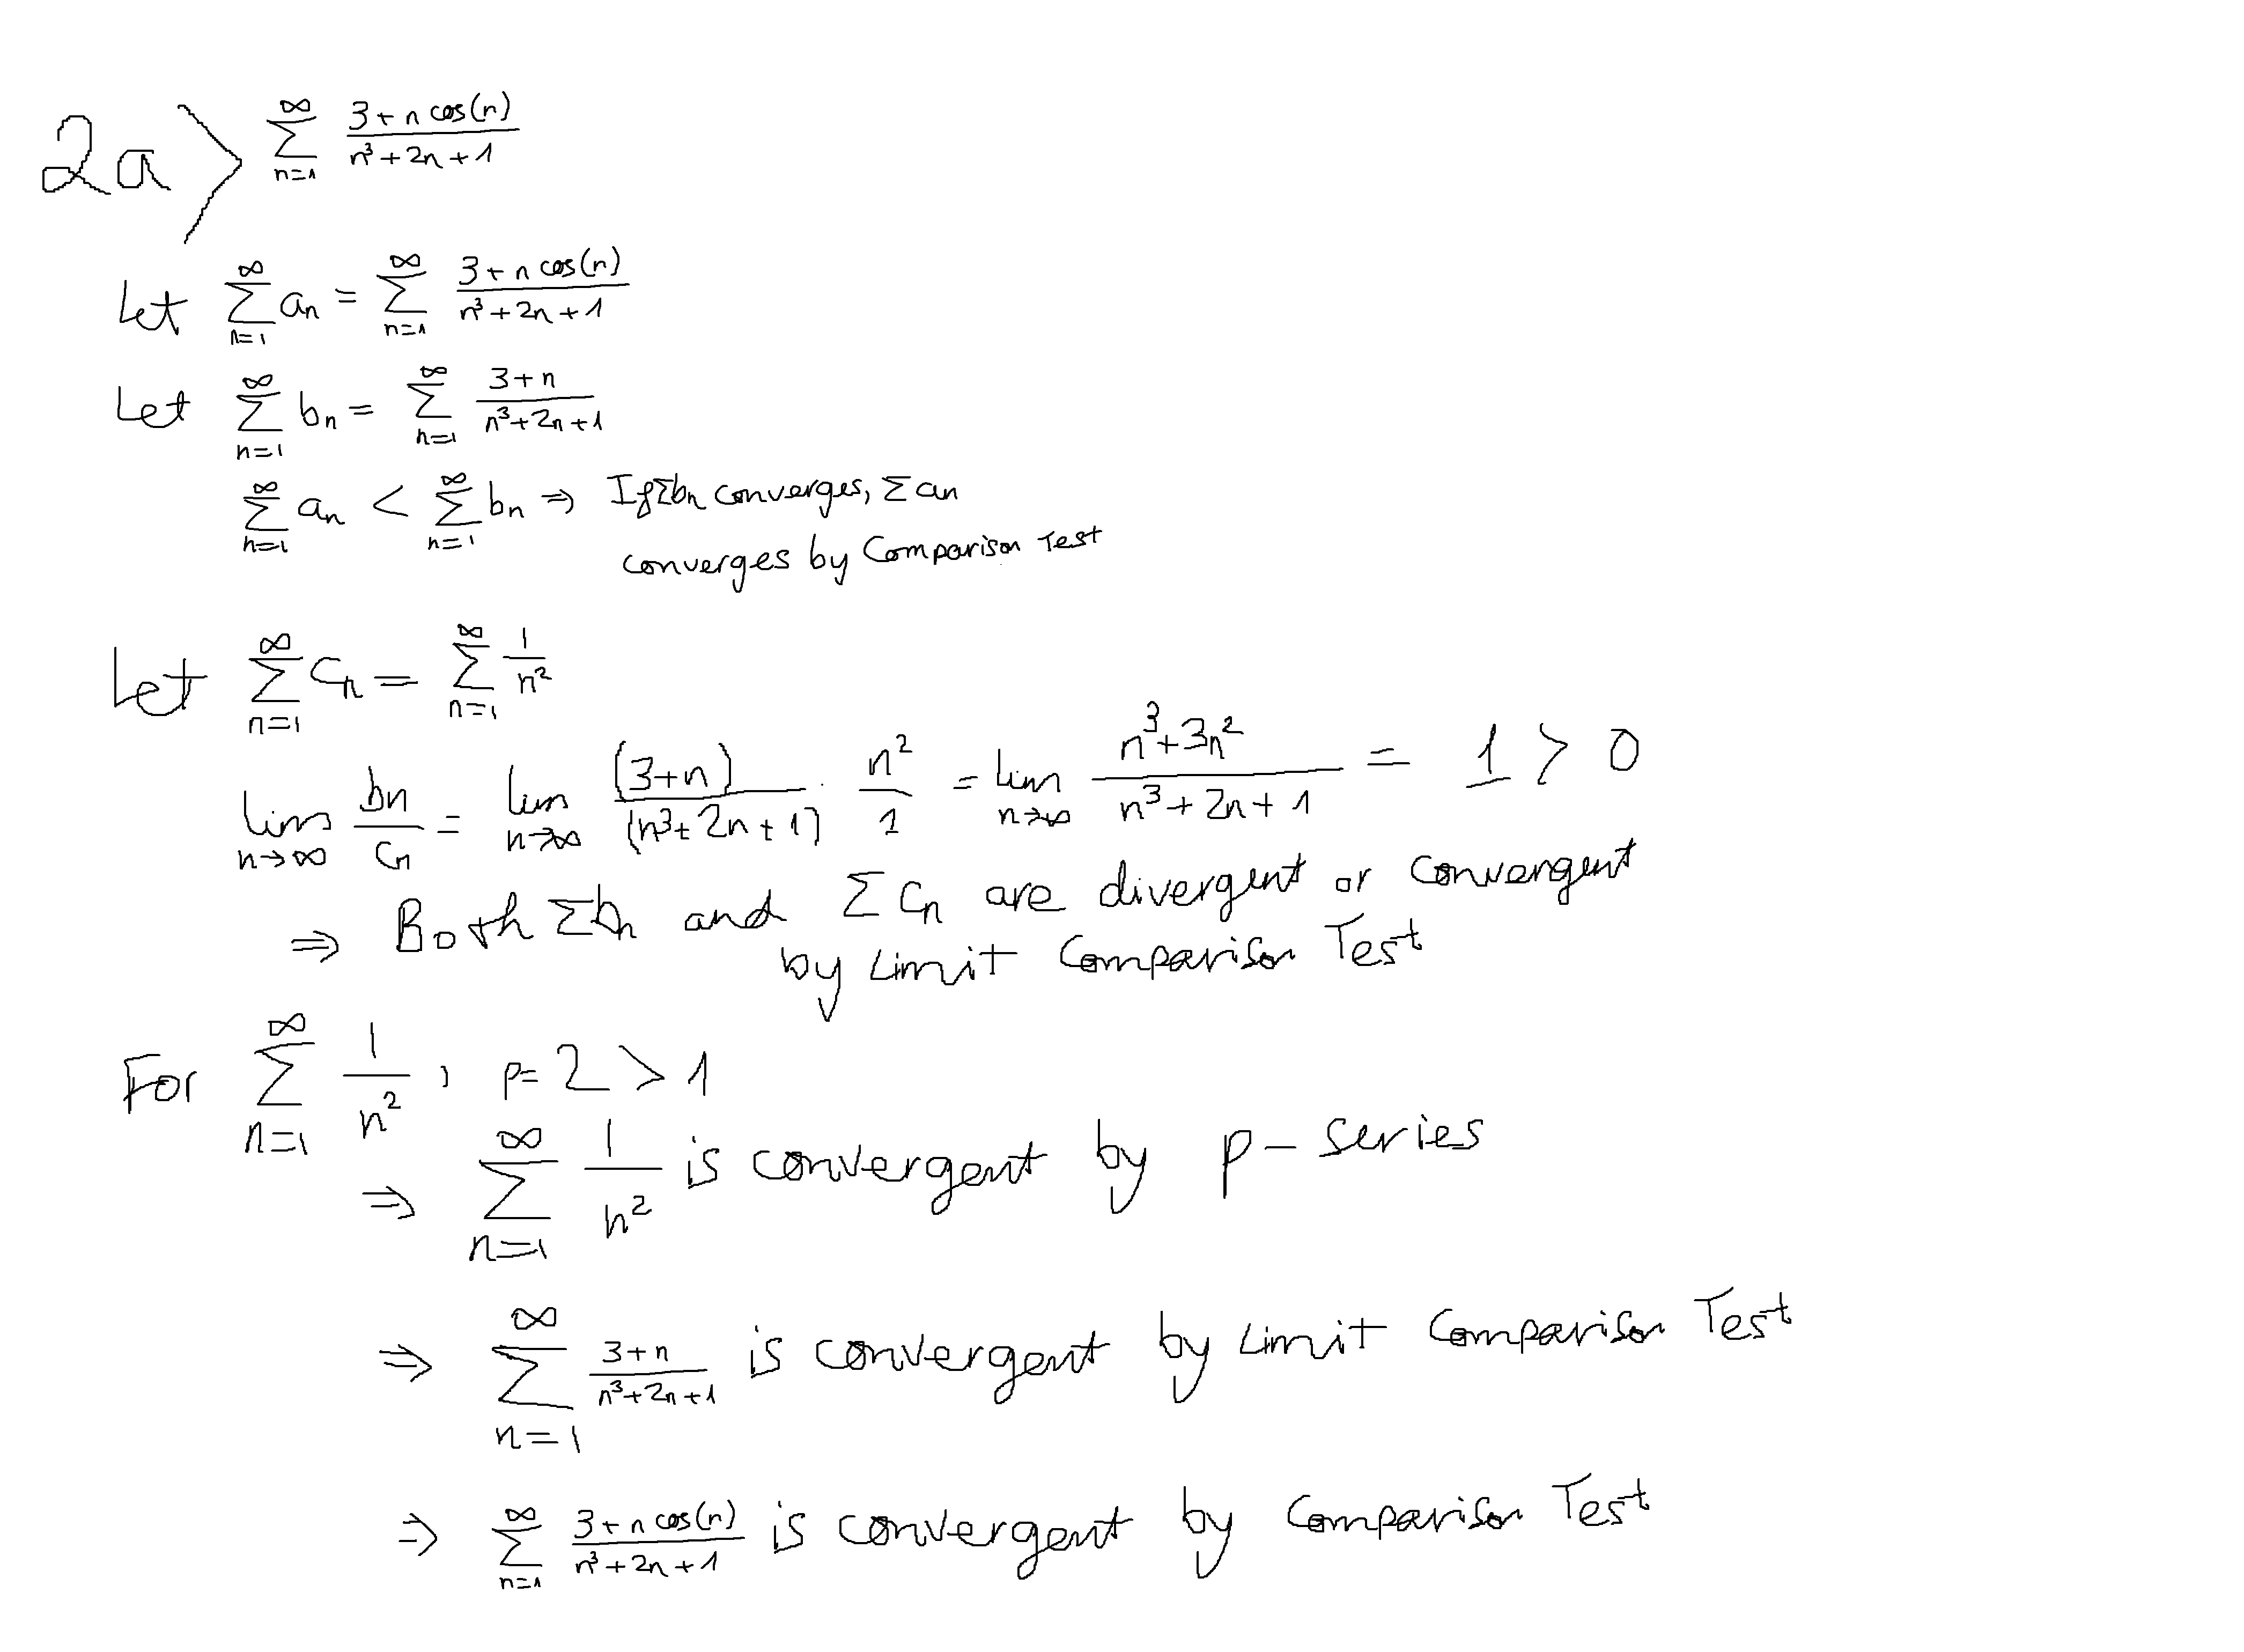 2a> \sum_{n=1}^{∞} \frac{3+n cos(n)}{n^3+2n+1}
Let \sum_{n=1}^{∞} a_n = \sum_{n=1}^{∞} \frac{3+n cos(n)}{n^3+2n+1}
Let \sum_{n=1}^{∞} b_n = \sum_{n=1}^{∞} \frac{3+n}{n^3+2n+1}
\sum_{n=1}^{∞} a_n < \sum_{n=1}^{∞} b_n ⇒ If Σb_n converges, Σa_n
converges by Comparison Test
Let \sum_{n=1}^{∞} C_n = \sum_{n=1}^{∞} \frac{1}{n^2}
\lim_{n→∞} \frac{b_n}{C_n} = \lim_{n→∞} \frac{(3+n)}{(n^3+2n+1)} · \frac{n^2}{1} = \lim_{n→∞} \frac{n^3+3n^2}{n^3+2n+1} = 1 > 0
⇒ Both Σb_n and ΣC_n are divergent or convergent
by Limit Comparison Test
For \sum_{n=1}^{∞} \frac{1}{n^2}, p=2>1
⇒ \sum_{n=1}^{∞} \frac{1}{n^2} is convergent by p-series
⇒ \sum_{n=1}^{∞} \frac{3+n}{n^3+2n+1} is convergent by Limit Comparison Test
⇒ \sum_{n=1}^{∞} \frac{3+n cos(n)}{n^3+2n+1} is convergent by Comparison Test